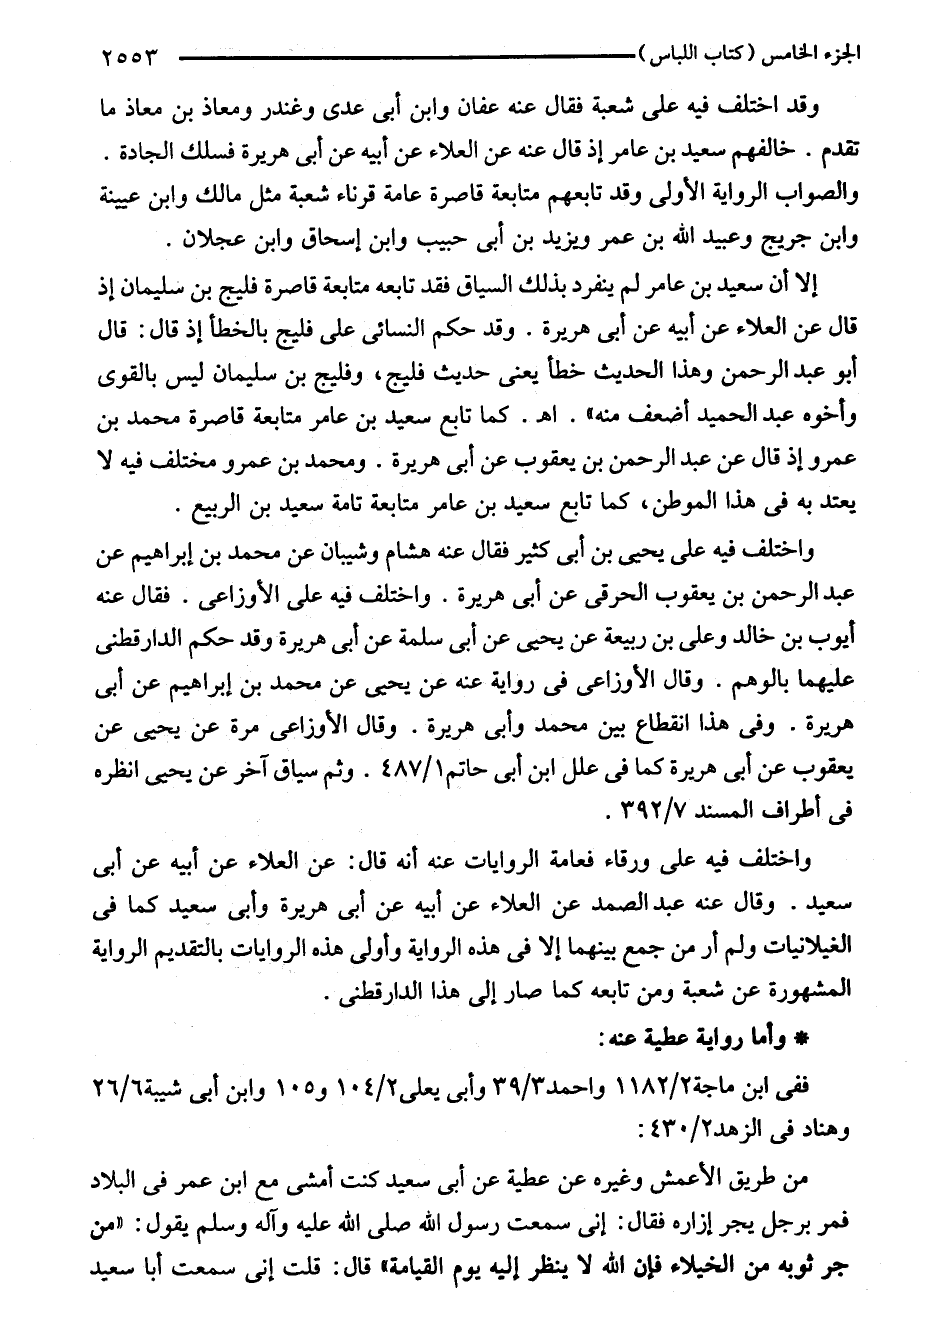 الجزء الخامس (كتاب اللباس) ٢٥٥٣
وقد اختلف فيه على شعبة فقال عنه عفان وابن أبى عدى وغندر ومعاذ بن معاذ ما
تقدم . خالفهم سعيد بن عامر إذ قال عنه عن العلاء عن أبيه عن أبى هريرة فسلك الجادة .
والصواب الرواية الأولى وقد تابعهم متابعة قاصرة عامة قرناء شعبة مثل مالك وابن عيينة
وابن جريج وعبيد الله بن عمر ويزيد بن أبى حبيب وابن إسحاق وابن عجلان .
إلا أن سعيد بن عامر لم ينفرد بذلك السياق فقد تابعه متابعة قاصرة فليج بن سليمان إذ
قال عن العلاء عن أبيه عن أبى هريرة . وقد حكم النسائى على فليج بالخطأ إذ قال: قال
أبو عبد الرحمن وهذا الحديث خطأ يعنى حديث فليج، وفليج بن سليمان ليس بالقوى
وأخوه عبد الحميد أضعف منه» . اهـ . كما تابع سعيد بن عامر متابعة قاصرة محمد بن
عمرو إذ قال عن عبد الرحمن بن يعقوب عن أبى هريرة . ومحمد بن عمرو مختلف فيه لا
يعتد به فى هذا الموطن، كما تابع سعيد بن عامر متابعة تامة سعيد بن الربيع .
واختلف فيه على يحيى بن أبى كثير فقال عنه هشام وشيبان عن محمد بن إبراهيم عن
عبد الرحمن بن يعقوب الحرقى عن أبى هريرة . واختلف فيه على الأوزاعى . فقال عنه
أيوب بن خالد وعلى بن ربيعة عن يحيى عن أبى سلمة عن أبى هريرة وقد حكم الدارقطنى
عليهما بالوهم . وقال الأوزاعى فى رواية عنه عن يحيى عن محمد بن إبراهيم عن أبى
هريرة . وفى هذا انقطاع بين محمد وأبى هريرة . وقال الأوزاعى مرة عن يحيى عن
يعقوب عن أبى هريرة كما فى علل ابن أبى حاتم ٤٨٧/١ . وثم سياق آخر عن يحيى انظره
فى أطراف المسند ٣٩٢/٧ .
واختلف فيه على ورقاء فعامة الروايات عنه أنه قال: عن العلاء عن أبيه عن أبى
سعيد . وقال عنه عبد الصمد عن العلاء عن أبيه عن أبى هريرة وأبى سعيد كما فى
الغيلانيات ولم أر من جمع بينهما إلا فى هذه الرواية وأولى هذه الروايات بالتقديم الرواية
المشهورة عن شعبة ومن تابعه كما صار إلى هذا الدارقطنى .
* وأما رواية عطية عنه:
ففى ابن ماجة ١١٨٢/٢ واحمد ٣٩/٣ وأبى يعلى ١٠٤/٢ و١٠٥ وابن أبى شيبة ٢٦/٦
وهناد فى الزهد ٤٣٠/٢:
من طريق الأعمش وغيره عن عطية عن أبى سعيد كنت أمشى مع ابن عمر فى البلاد
فمر برجل يجر إزاره فقال: إنى سمعت رسول الله صلى الله عليه وآله وسلم يقول: «من
جر ثوبه من الخيلاء فإن الله لا ينظر إليه يوم القيامة» قال: قلت إنى سمعت أبا سعيد